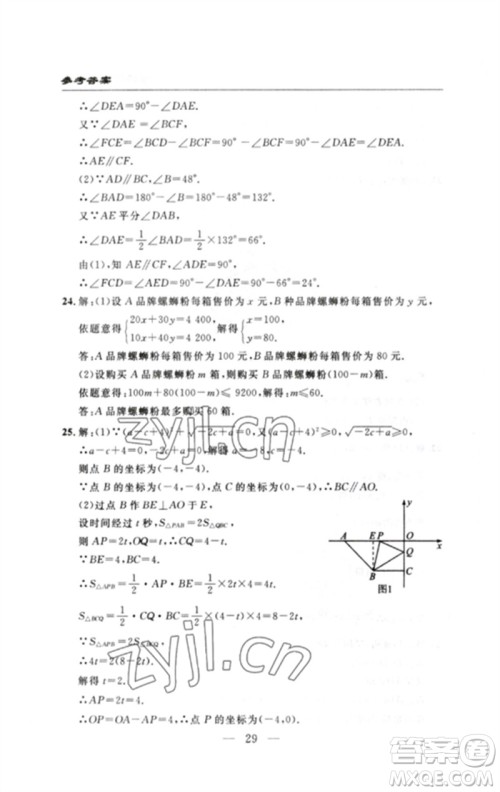 参考答案
∴∠DEA=90°-∠DAE.
又∵∠DAE=∠BCF,
∴∠FCE=∠BCD-∠BCF=90°-∠BCF=90°-∠DAE=∠DEA.
∴AE∥CF.
(2)∵AD∥BC,∠B=48°,
∴∠BAD=180°-∠B=180°-48°=132°.
又∵AE平分∠BAD,
∴∠DAE=1/2∠BAD=1/2×132°=66°.
由(1),知AE∥CF,
∴∠FCD=∠AED=90°-66°=24°.
24.解:(1)设A品牌螺蛳粉每箱售价为x元,B种品牌螺蛳粉每箱售价为y元,
依题意得{20x+30y=4 400, 10x+40y=4 200, 解得{x=100, y=80.
答:A品牌螺蛳粉每箱售价为100元,B品牌螺蛳粉每箱售价为80元.
(2)设购买A品牌螺蛳粉m箱,则购买B品牌螺蛳粉(100-m)箱,
依题意得:100m+80(100-m)≤9200,解得:m≤60.
答:A品牌螺蛳粉最多购买60箱.
25.解:(1)∵(a-c+4)²+√-2c+a=0,又∵(a-c+4)²≥0,√-2c+a≥0,
∴a-c+4=0,-2c+a=0,解得a=-8,c=-4.
则点B的坐标为(-4,-4).
∵点B的坐标为(-4,-4),点C的坐标为(0,-4),∴BC∥AO.
(2)过点B作BE⊥AO于E,
设时间经过t秒,S△PAB=2S△QBC,
则AP=2t,OQ=t,
∵BE=4,BC=4,
∴S△APB=1/2·AP·BE=1/2×2t×4=4t,
S△BCQ=1/2·CQ·BC=1/2×(4-t)×4=8-2t.
∵S△APB=2S△BCQ,
∴4t=2(8-2t).
解得t=2.
∴AP=2t=4,
∴OP=OA-AP=4,∴点P的坐标为(-4,0).
y
A
E
P
O
x
Q
B
C
图1
29
zyjl.cn
zyjl.cn
答案圈
MXQE.COM